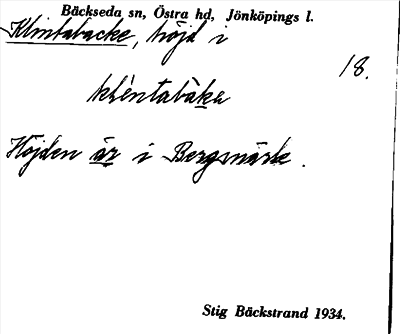 Bäckseda sn, Östra hd, Jönköpings l.
Klintabacke, höjd i
18.
kléntabàka
Höjden är i Bergmärk.
Stig Bäckstrand 1934.